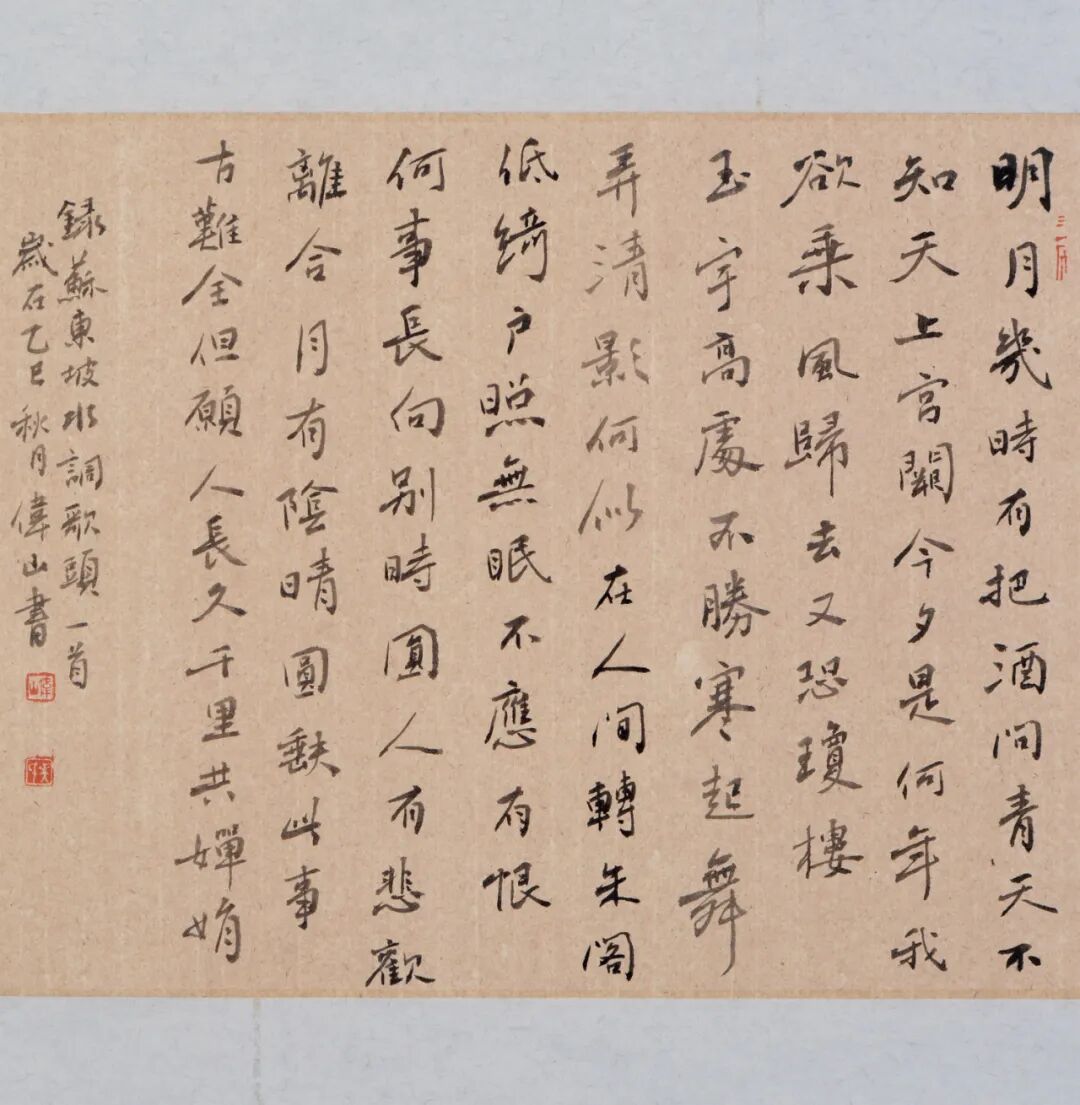 明月幾時有把酒問青天不
知天上宮闕今夕是何年我
欲乘風歸去又恐瓊樓
玉宇高處不勝寒起舞
弄清影何似在人間轉朱閣
低綺户照無眠不應有恨
何事長向别時圓人有悲歡
離合月有陰晴圓缺此事
古難全但願人長久千里共嬋娟
録蘇東坡水調歌頭一首
歲在乙巳秋月偉山書
偉山